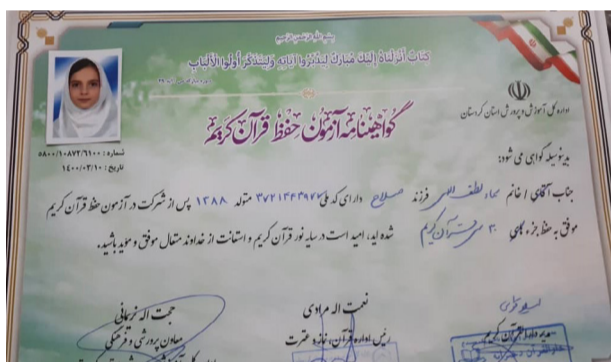 بسم الله الرحمن الرحیم
کتاب أنزلناه إلیک مبارک لیدبروا آیاته ولیتذکر أولوا الألباب
اداره کل آموزش و پرورش استان کردستان
گواهینامه آزمون حفظ قرآن کریم
شماره: ۵۸۰۰/۱۰۸۷۲/۶۱۰۰
تاریخ: ۱۴۰۰/۰۳/۱۰
بدینوسیله گواهی می شود:
جناب آقای / خانم لطف اللهی فرزند صلاح دارای کد ملی متولد ۱۳۸۸ پس از شرکت در آزمون حفظ قرآن کریم
موفق به حفظ جزء های ۳۰ قرآن کریم شده اید، امید است در سایه نور قرآن کریم و استعانت از خداوند متعال موفق و مؤید باشید.
نعمت اله مرادی
رئیس اداره قرآن، نماز و عترت
حجت اله نریمانی
معاون پرورشی و فرهنگی
مدیر دارالقرآن کریم